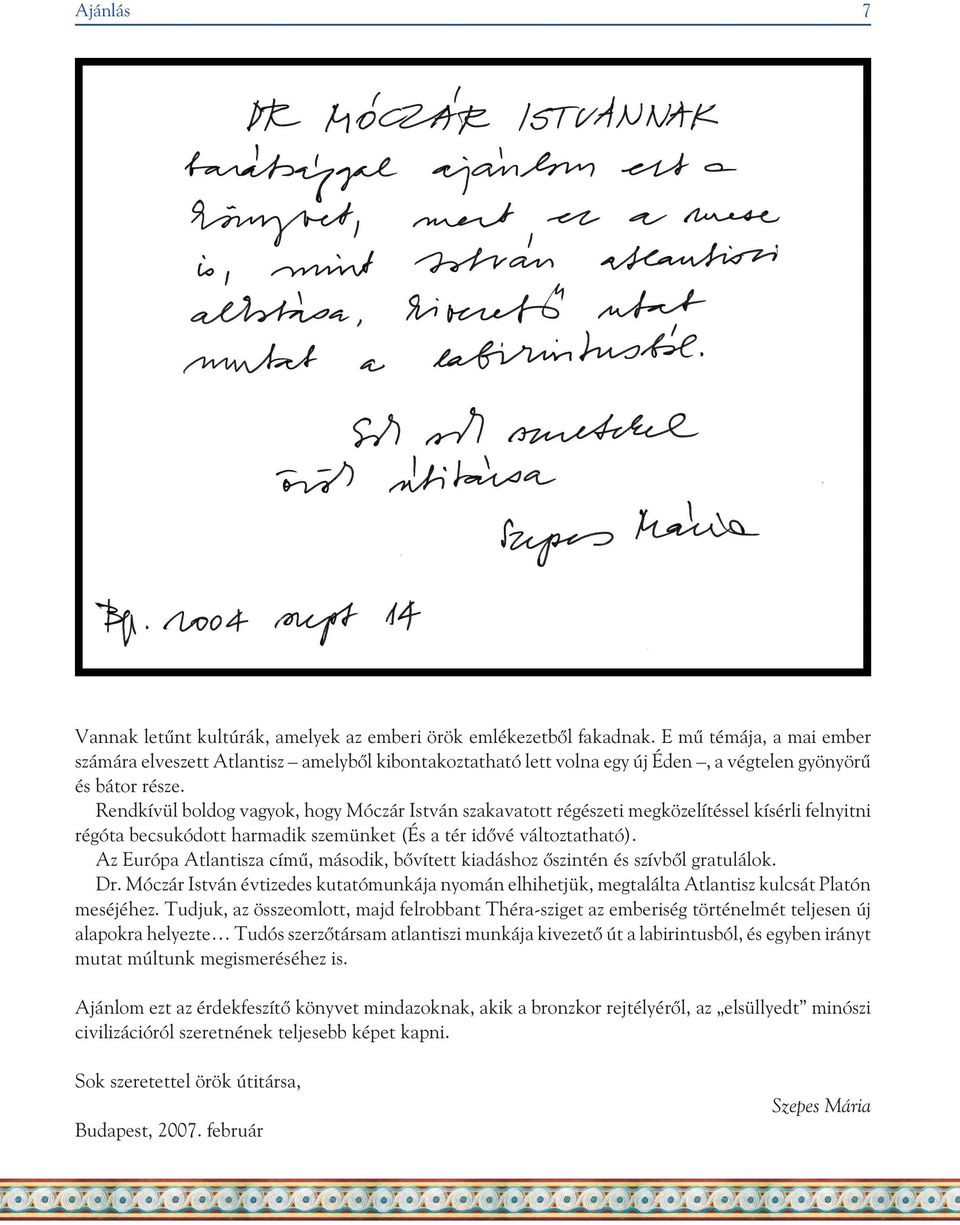 Ajánlás 7
DR MÓCZÁR ISTVÁNNAK
barátsággal ajánlom ezt a
könyvet, mert ez a mese
is, mint István atlantiszi
alkotása, kivezető utat
mutat a labirintusból.
Sok sok szeretettel
örök útitársa
Szepes Mária
Bp. 2004 szept 14
Vannak letűnt kultúrák, amelyek az emberi örök emlékezetből fakadnak. E mű témája, a mai ember
számára elveszett Atlantisz – amelyből kibontakoztatható lett volna egy új Éden –, a végtelen gyönyörű
és bátor része.
Rendkívül boldog vagyok, hogy Móczár István szakavatott régészeti megközelítéssel kísérli felnyitni
régóta becsukódott harmadik szemünket (És a tér idővé változtatható).
Az Európa Atlantisza című, második, bővített kiadáshoz őszintén és szívből gratulálok.
Dr. Móczár István évtizedes kutatómunkája nyomán elhihetjük, megtalálta Atlantisz kulcsát Platón
meséjéhez. Tudjuk, az összeomlott, majd felrobbant Théra-sziget az emberiség történelmét teljesen új
alapokra helyezte… Tudós szerzőtársam atlantiszi munkája kivezető út a labirintusból, és egyben irányt
mutat múltunk megismeréséhez is.
Ajánlom ezt az érdekfeszítő könyvet mindazoknak, akik a bronzkor rejtélyéről, az „elsüllyedt” minószi
civilizációról szeretnének teljesebb képet kapni.
Sok szeretettel örök útitársa,
Szepes Mária
Budapest, 2007. február